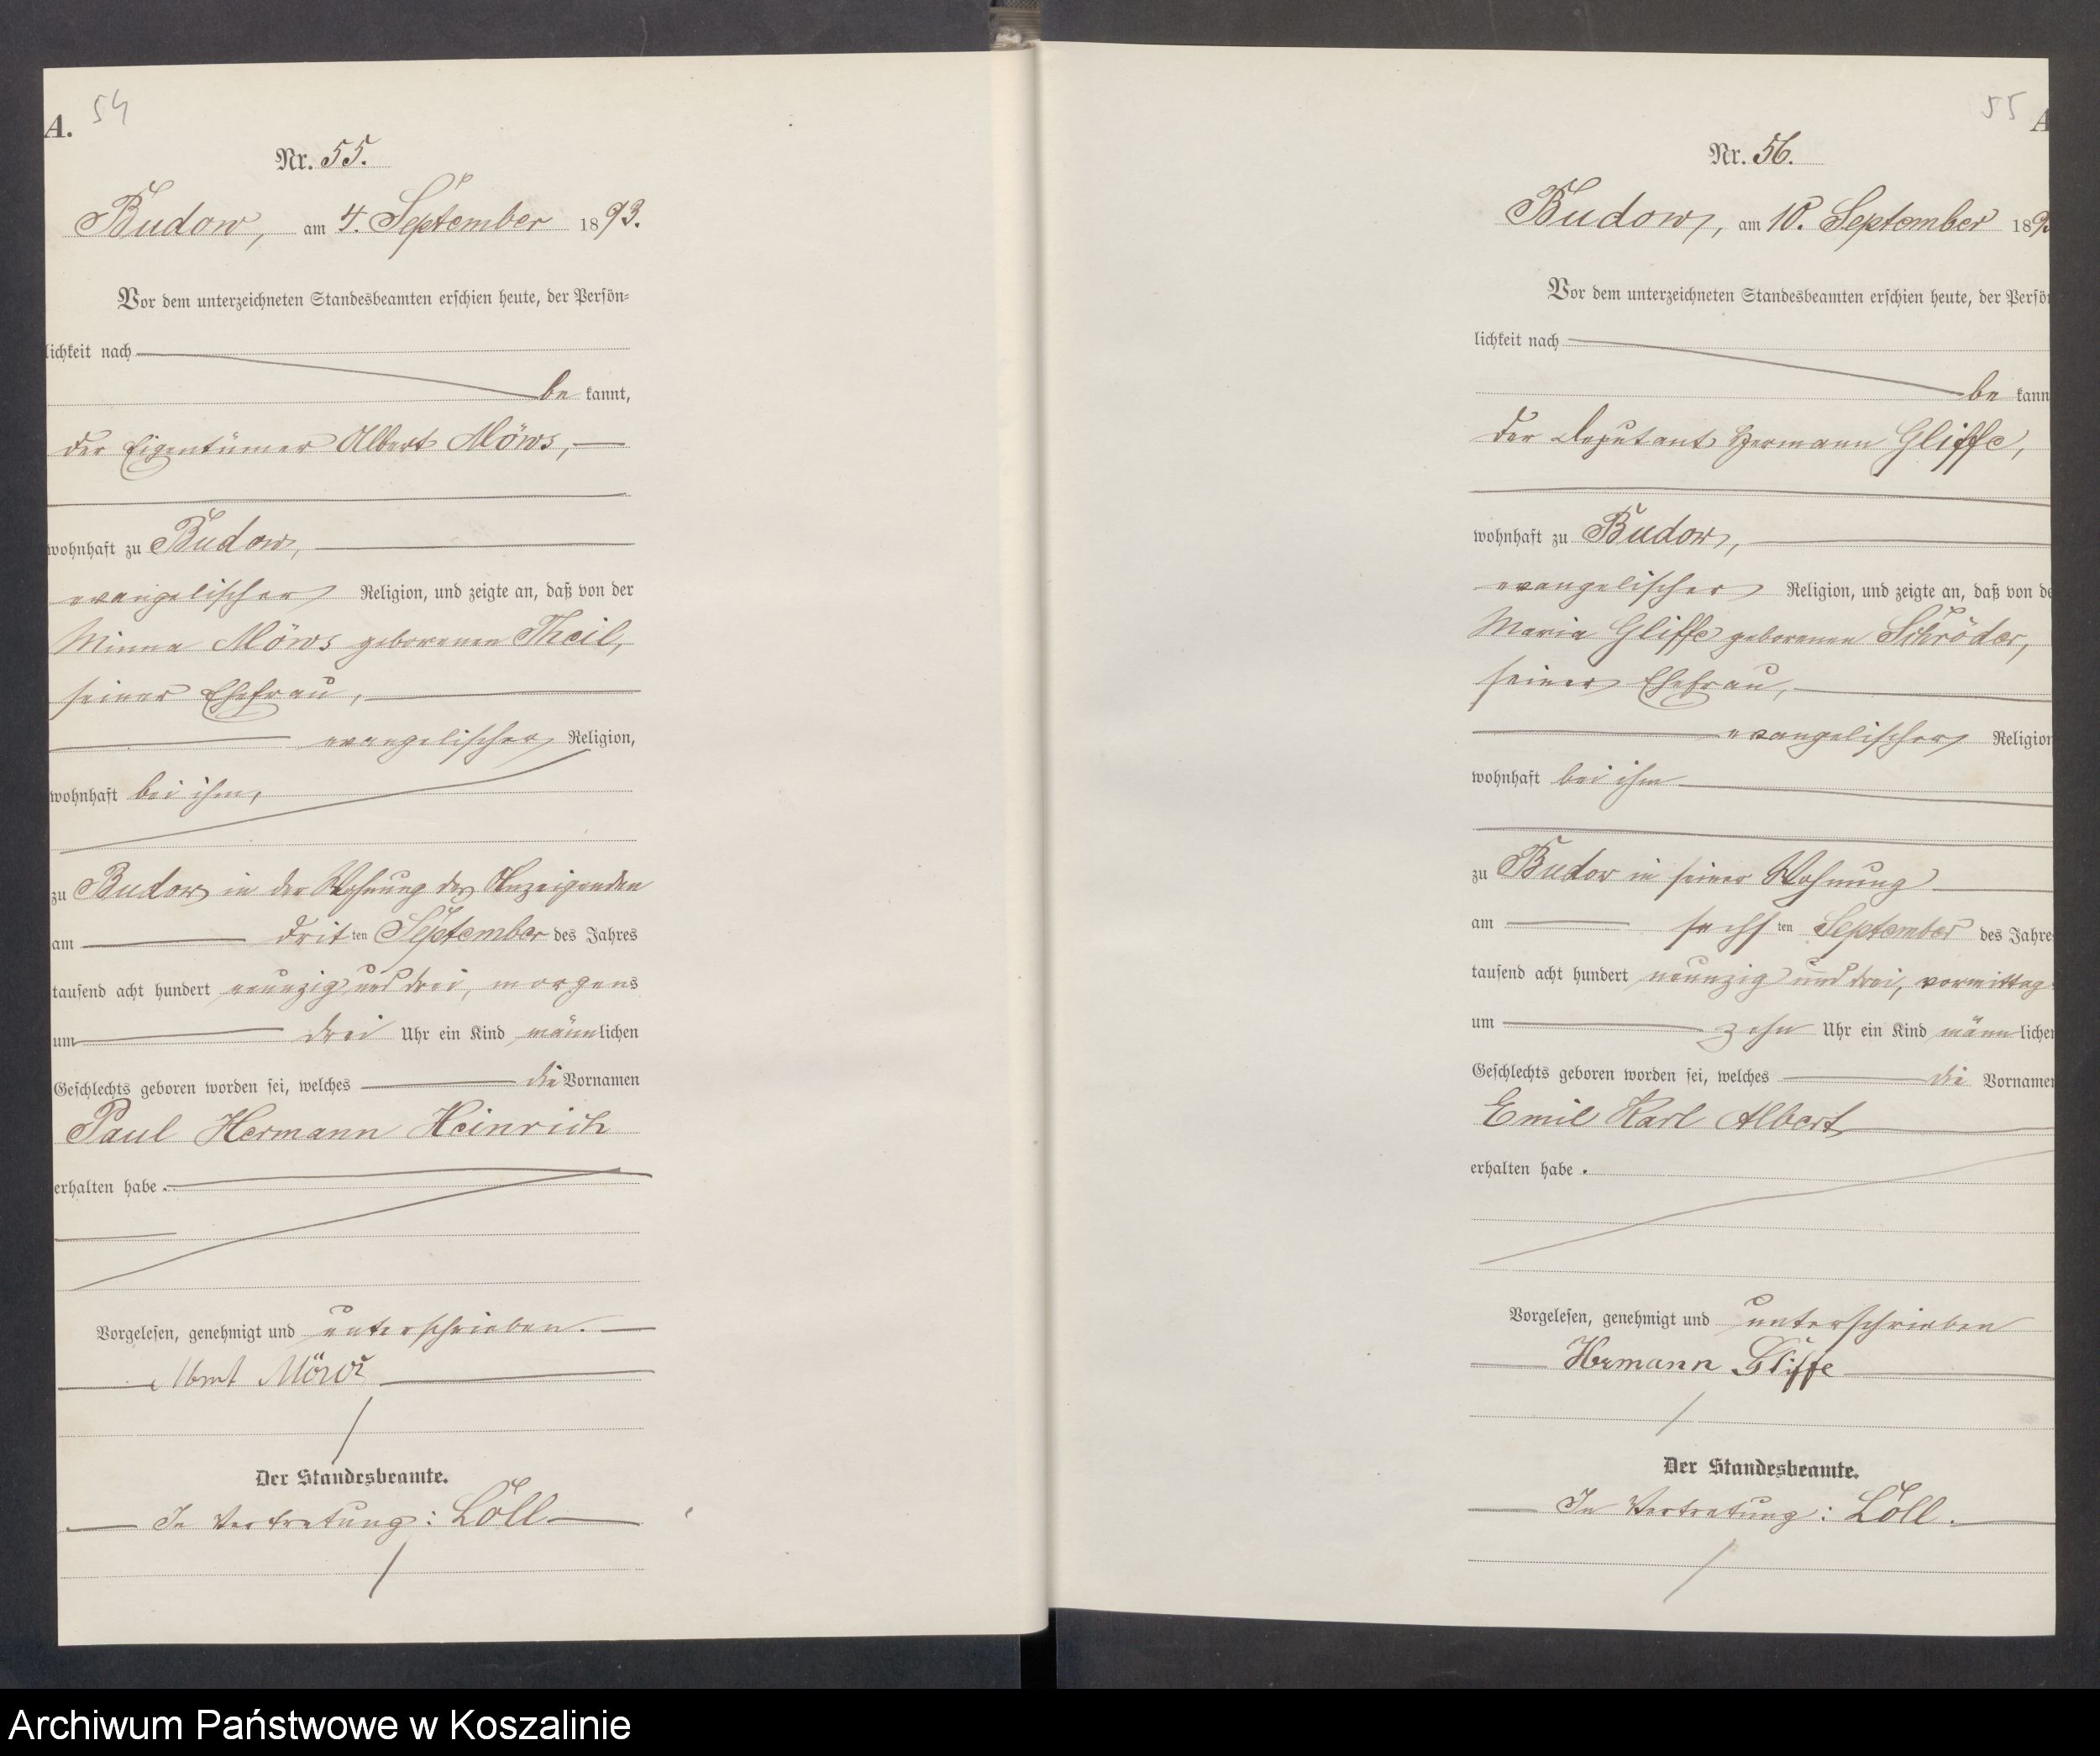 A.
54
Nr. 55.
Budow, am 4. September 1893.
Vor dem unterzeichneten Standesbeamten erschien heute, der Persön=
lichkeit nach
be kannt,
der Eigentümer Albert Möws,
wohnhaft zu Budow,
evangelischer Religion, und zeigte an, daß von der
Minna Möws geborenen Theil,
seiner Ehefrau,
evangelischer Religion,
wohnhaft bei ihm,
zu Budow in der Wohnung des Anzeigenden
am drit ten September des Jahres
tausend acht hundert neunzig und drei, morgens
um drei Uhr ein Kind männlichen
Geschlechts geboren worden sei, welches die Vornamen
Paul Hermann Heinrich
erhalten habe.
Vorgelesen, genehmigt und unterschrieben.
Möws
Der Standesbeamte.
In Vertretung: Löll
55
A
Nr. 56.
Budow, am 10. September 189
Vor dem unterzeichneten Standesbeamten erschien heute, der Persö
lichkeit nach
be kann
der Deputant Hermann Gliffe,
wohnhaft zu Budow,
evangelischer Religion, und zeigte an, daß von de
Maria Gliffe geborenen Schröder,
seiner Ehefrau,
evangelischer Religion
wohnhaft bei ihm
zu Budow in seiner Wohnung
am sechs ten September des Jahre
tausend acht hundert neunzig und drei, vormittag
um zehn Uhr ein Kind männ licher
Geschlechts geboren worden sei, welches die Vornamen
Emil Karl Albert
erhalten habe.
Vorgelesen, genehmigt und unterschrieben
Hermann Gliffe
Der Standesbeamte.
In Vertretung: Löll.
Archiwum Państwowe w Koszalinie